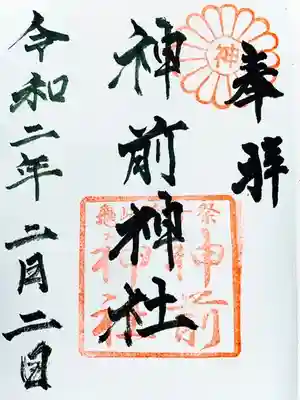 奉拝
神
神前神社
亀崎
祭
神前
神社
令和二年二月二日